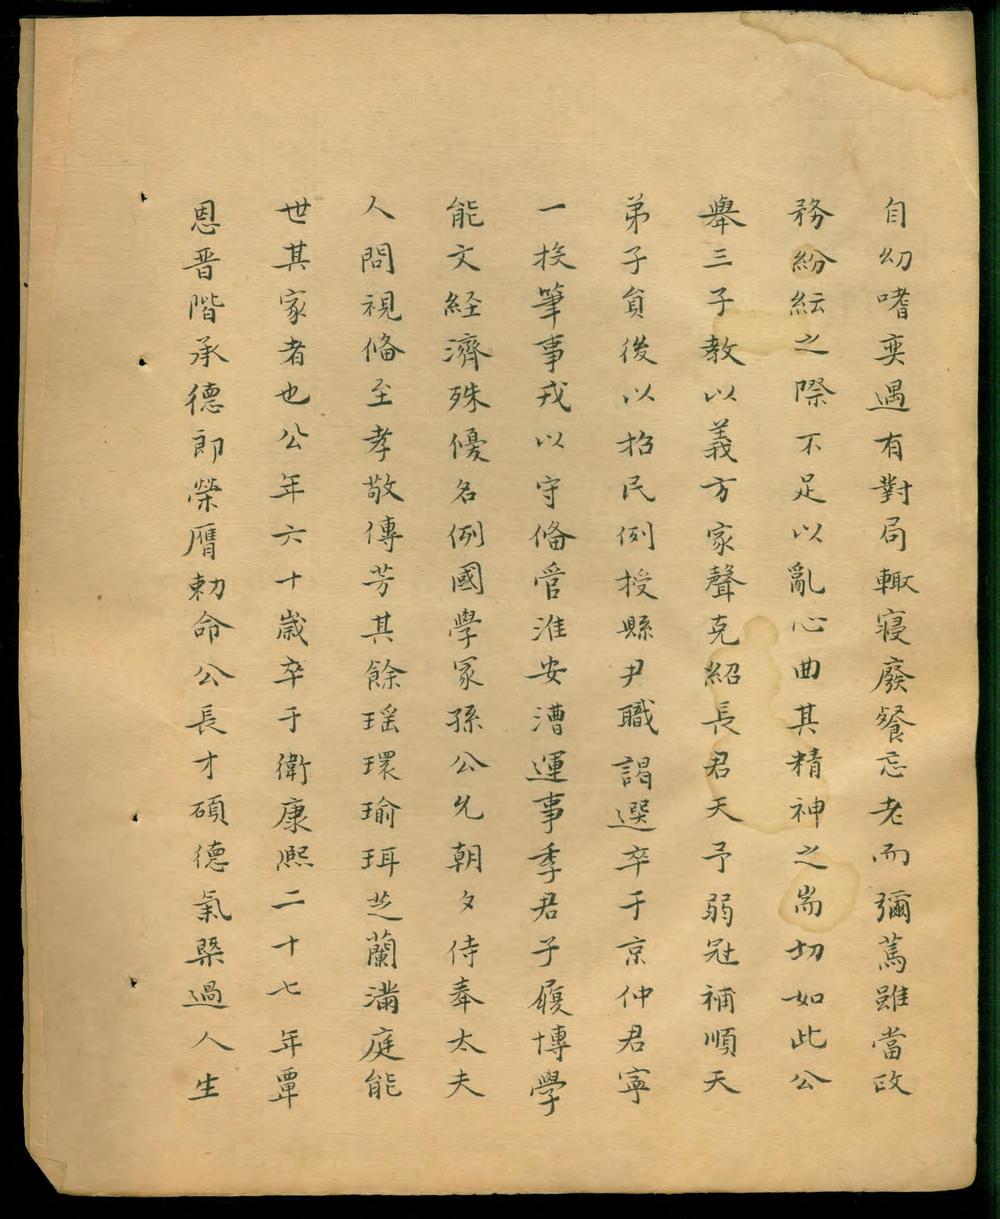 自幼嗜奕遇有對局輙寢廢餐忘老而彌篤雖當政
務紛紜之際不足以亂心曲其精神之耑切如此公
舉三子教以義方家聲克紹長君天予弱冠補順天
弟子貟後以招民例授縣尹職謁選卒于京仲君寜
一投筆事戎以守俻官淮安漕運事季君子履博學
能文経濟殊優名例國學冢孫公允朝夕侍奉太夫
人問視俻至孝敬傳芳其餘瑶環瑜珥芝蘭滿庭能
世其家者也公年六十歳卒于衛康熈二十七年覃
恩晋階承德郎榮膺勅命公長才碩德氣槩過人生